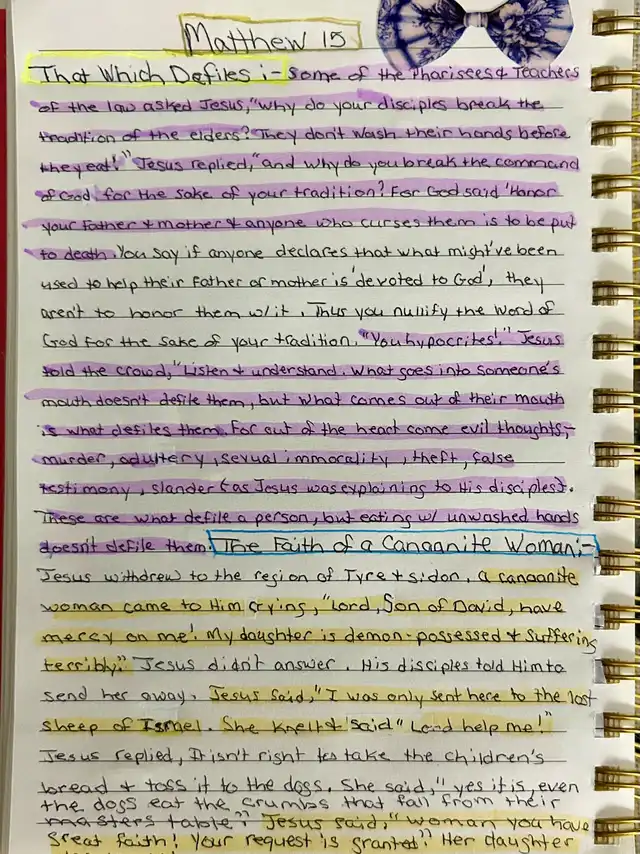 Matthew 15
That Which Defiles :- Some of the Pharisees & Teachers
of the law asked Jesus, "Why do your disciples break the
tradition of the elders? They don't wash their hands before
they eat!" Jesus replied, "and why do you break the command
of God for the sake of your tradition? For God said 'Honor
your father & mother & anyone who curses them is to be put
to death. You say if anyone declares that what might've been
used to help their father or mother is 'devoted to God', they
aren't to honor them w/it. Thus you nullify the word of
God for the sake of your tradition. "You hypocrites!" Jesus
told the crowd, "Listen & understand. What goes into someone's
mouth doesn't defile them, but what comes out of their mouth
is what defiles them. For out of the heart come evil thoughts,-
murder, adultery, sexual immorality, theft, false
testimony, slander (as Jesus was explaining to His disciples).
These are what defile a person, but eating w/ unwashed hands
doesn't defile them. The Faith of a Canaanite Woman:-
Jesus withdrew to the region of Tyre & sidon. A canaanite
woman came to Him crying, "Lord, Son of David, have
mercy on me! My daughter is demon-possessed & suffering
terribly." Jesus didn't answer. His disciples told Him to
send her away. Jesus said, "I was only sent here to the lost
sheep of Israel. She knelt & said "Lord help me!"
Jesus replied, It isn't right to take the children's
bread & toss it to the dogs. She said, "yes it is, even
the dogs eat the crumbs that fall from their
masters table." Jesus said, "woman you have
great faith! Your request is granted." Her daughter